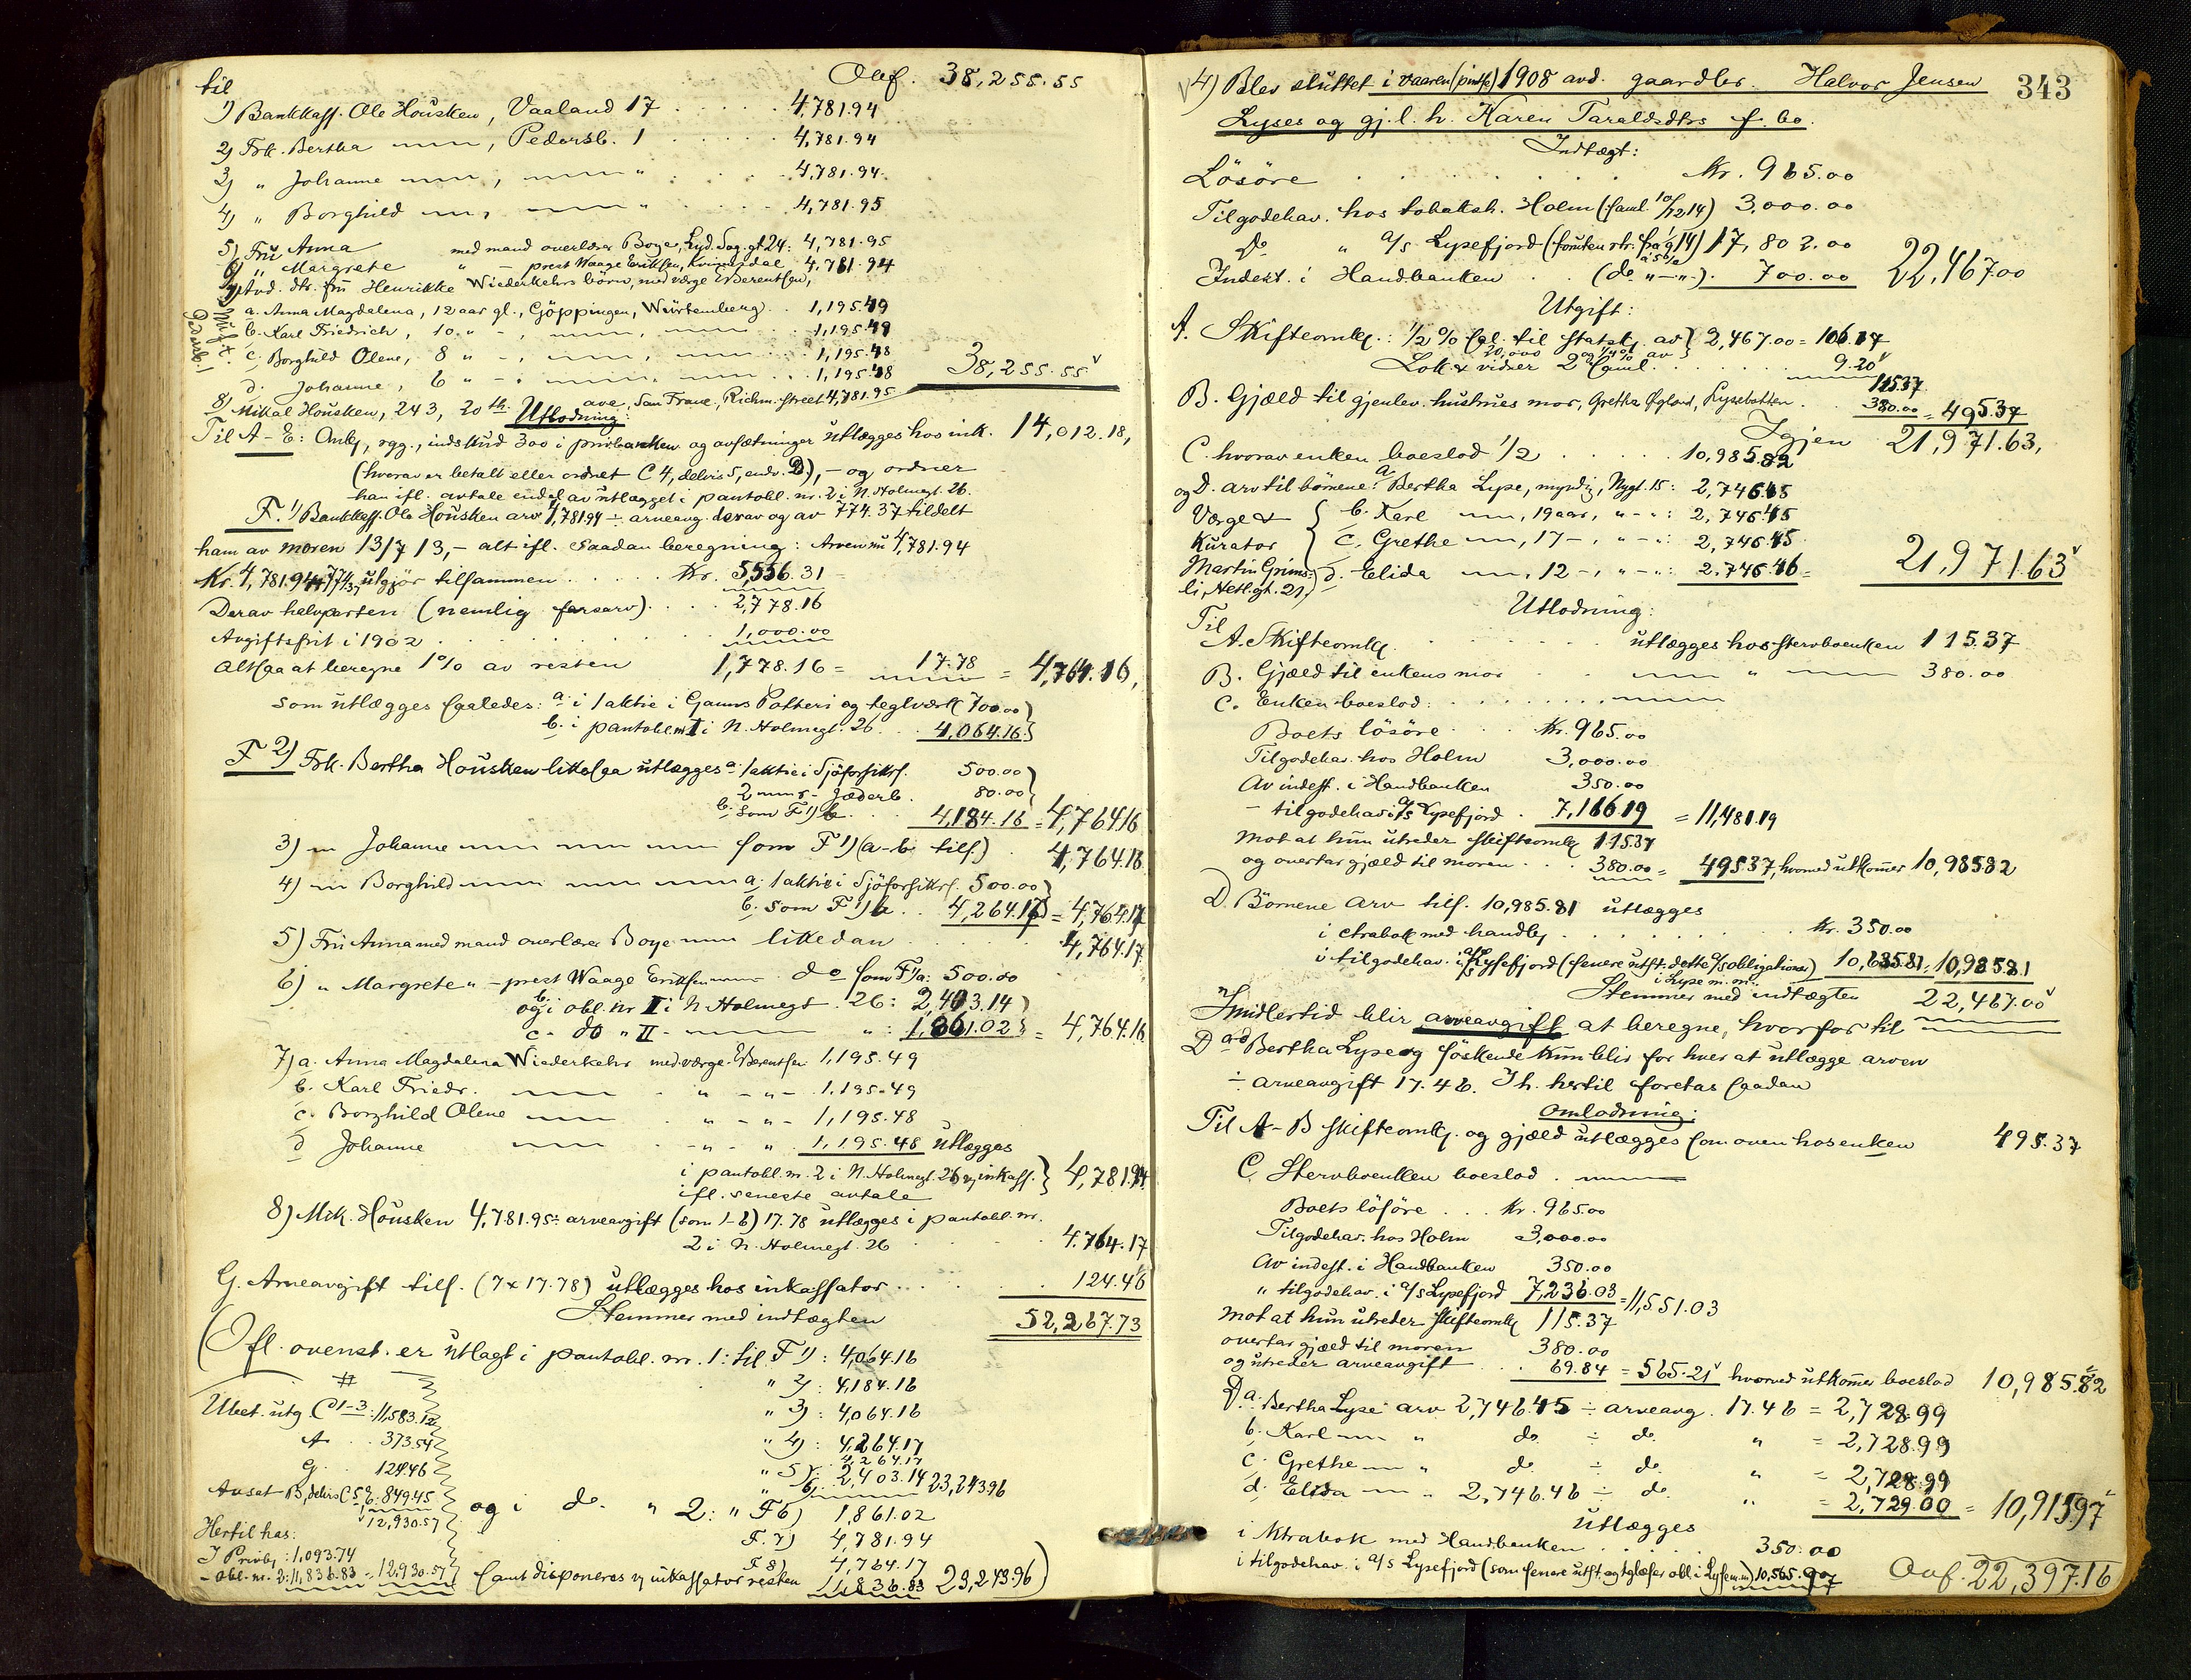 Ovf. 38,255.55
til
1) Bankkass. Ole Housken, Vaaland 17 4,781.94
2) Frk. Bertha —, Pedersb. 1 4,781.94
3) " Johanne —, — " 4,781.94
4) " Borghild —, — " 4,781.95
5) Fru Anna med mand overlærer Boye, Lyd. Sag. gt. 24: 4,781.95
6) " Margrete " — prest Waage Eriksen, Kvinesdal 4,781.94
7) Avd. dtr. fru Henrikke Wiederkehrs börn, med værge E. Berentsen,
Pedersb. 1
a. Anna Magdalena, 12 aar gl., Göppingen, Würtemberg 1,195.49
b. Karl Friedrich, 10 " — , —, — 1,195.49
c. Borghild Olene, 8 " — , —, — 1,195.48
d. Johanne, 6 " — , —, — 1,195.48 38,255.55
8) Mikal Housken, 243, 20th ave, San Franc., Richm. street 4,781.95
Utlodning:
Til A-E: Omk., rgg., indskud 300 i privbanken og avsætninger utlægges hos ink. 14,012.18,
(hvorav er betalt eller ordnet C 4, delvis 5, endv. D), — og ordner
han ifl. avtale endel av utlægget i pantobl. nr. 2 i N. Holmegt. 26.
F. 1) Bankkass. Ole Housken arv 4,781.94 ÷ arveavg. derav og av 774.37 tildelt
ham av moren 13/7 13, — alt ifl. saadan beregning: Arven nu 4,781.94
Kr. 4,781.94 + 774.37 utgjør tilsammen Kr. 5,556.31
Derav halvparten (nemlig farsarv) 2,778.16
Avgiftsfrit i 1902 1,000.00
altsaa at beregne 1% av resten 1,778.16 = 17.78 = 4,764.16,
som utlægges saaledes: a. i 1 aktie i Ganns Potteri og teglværk 700.00
b. i pantobl. nr. I i N. Holmegt. 26 4,064.16
F 2) Frk. Bertha Housken likesaa utlægges a. 1 aktie i Sjöforsikrs. 500.00
2 — - Jæderb. 80.00
b. som F 1) b 4,184.16 = 4,764.16
3) — Johanne — — — som F 1) (a-b tils.) 4,764.16
4) — Borghild — — — a. 1 aktie i Sjöforsikrs. 500.00
b. som F 1) b 4,264.17 = 4,764.17
5) Fru Anna med mand overlærer Boye — likedan 4,764.17
6) " Margrete " — prest Waage Eriksen — do som F 1) a: 500.00
og b. i obl. nr I i N. Holmegt. 26: 2,403.14
c. do " II - — ": 1,861.02 = 4,764.16
7) a. Anna Magdalena Wiederkehr med værge E. Berentsen 1,195.49
b. Karl Friedr. — " - " - 1,195.49
c. Borghild Olene — " - " - 1,195.48
d Johanne — " - " 1,195.48 utlægges
i pantobl. nr. 2 i N. Holmegt. 26 og inkass. 4,781.94
ifl. seneste avtale
8) Mik. Housken 4,781.95 ÷ arveavgift (som 1-6) 17.78 utlægges i pantobl. nr.
2 i N. Holmegt. 26 4.764.17
G. Arveavgift tils. (7 x 17.78) utlægges hos inkassator 124.46
Stemmer med indtægten 52,267.73
(Ifl. ovenst. er utlagt i pantobl. nr. 1: til F 1): 4,064.16
" 2): 4,184.16
" 3): 4,064.16
" 4): 4,264.17
" 5) 4,264.17
" 6) 2,403.14 23,243.96
og i do. " 2: " F 6) 1,861.02
F. 7) 4,781.94
F 8) 4,764.17
samt disponeres og inkassator resten 11,836.83 23,243.96)
#
Ubet. utg. C 1-3: 11,583.12
A 373.54
G. 124.46
Avsat B, delvis C 5, E: 849.45
12,930.57
Hertil has:
I Privb.: 1,093.74
- obl. nr. 2: 11,836.83 = 12,930.57
343
4) Blev sluttet i vaaren (pintse) 1908 avd. gaardbr. Halvor Jensen
Lyses og gj. l. h. Karen Taraldsdtrs f. bo.
Indtægt:
Lösöre Kr. 965.00
Tilgodehav. hos tobaksh. Holm (saml. 10/12 14) 3,000.00
Do " a/s Lysefjord (foruten rtr. fra 1/9 14) 17,802.00
Indest. i Handbanken (do " — ") 700.00 22,467.00
Utgift:
A. Skifteomk.: 1/2 % sal. til statsk. av 2,467.00 = 106.17
20,000 og 1/4 % av
Lok. & vidner 2 saml. 9.20
115.37
B. Gjæld til gjenlev. hustrues mor, Grethe Øgland, Lysebotten 380.00 = 495.37
Igjen 21,971.63,
C. hvorav enken boeslod 1/2 10,985.82
og D. arv til börnene: a. Bertha Lyse, myndig, Nygt. 15: 2,746.45
Værge & b. Karl —, 19 aar, " - ": 2,746.45
Kurator c. Grethe —, 17 —, " - ": 2,746.45
Martin Grims- d. Elida —, 12 —, " - ": 2,746.46 = 21,971.63
li, Hetl. gt. 21,
Utlodning:
Til
A. Skifteomk. utlægges hos stervboenken 115.37
B. Gjæld til enkens mor — " — 380.00
C. Enken boeslod: —
Boets lösöre Kr. 965.00
Tilgodehav. hos Holm 3,000.00
Av indest. i Handbanken 350.00
- tilgodehav. i a/s Lysefjord 7,166.19 = 11,481.19
mot at hun utreder skifteomk. 115.37
og overtar gjæld til moren 380.00 = 495.37, hvorved utkommer 10,985.82
D. Börnene arv tils. 10,985.81 utlægges
i ctrabok med handbk. Kr. 350.00
i tilgodehav. i a/s Lysefjord (senere utst. dette a/s obligationer) 10,635.81 = 10,985.81
i Lyse m.m.
Stemmer med indtægten 22,467.00
Imidlertid blir arveavgift at beregne, hvorfor til
D a-d Bertha Lyse og söskende kun blir for hver at utlægge arven
÷ arveavgift 17.46. Ih. hertil foretas saadan
omlodning:
Til A-B skifteomk. og gjæld utlægges som oven hos enken 495.37
C. Stervboenken boeslod. —
Boets lösöre Kr. 965.00
Tilgodehav. hos Holm 3,000.00
Av indest. i Handbanken 350.00
" tilgodehav. i a/s Lysefjord 7,236.03 = 11,551.03
mot at hun utreder skifteomk 115.37
overtar gjæld til moren 380.00
og utreder arveavgift 69.84 = 565.21 hvorved utkommer boeslod 10,985.82
D. a. Bertha Lyse arv 2,746.45 ÷ arveavg. 17.46 = 2,728.99
b. Karl — " do. ÷ do. " = 2,728.99
c. Grethe — " do. ÷ do. " = 2,728.99
d. Elida — " 2,746.46 ÷ do. " = 2,729.00 = 10,915.97
utlægges
i ktrabok med Handbanken 350.00
i tilgodehav. i a/s Lysefjord (som senere utst. obl. i Lyse m.m) 10,565.97 Ovf. 22,397.16